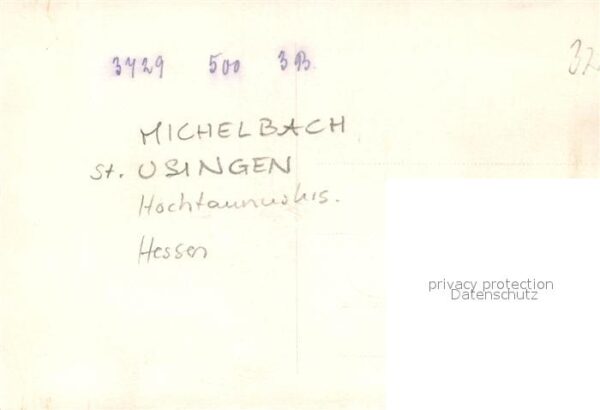 3729 500 3B.
MICHELBACH
St. USINGEN
Hochtaunuskrs.
Hessen
privacy protection
Datenschutz